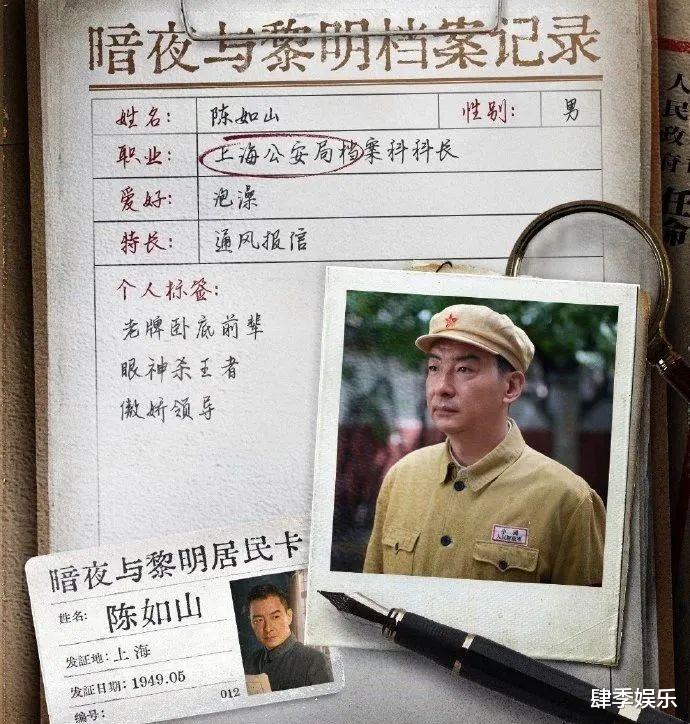 暗夜与黎明档案记录
姓名: 陈如山 性别: 男
职业: 上海公安局档案科科长
爱好: 泡澡
特长: 通风报信
个人标签:
老牌卧底前辈
眼神杀王者
傲娇领导
暗夜与黎明居民卡
姓名: 陈如山
发証地: 上海
发証日期: 1949.05
编号:
012
人民政府
任命
肆季娱乐